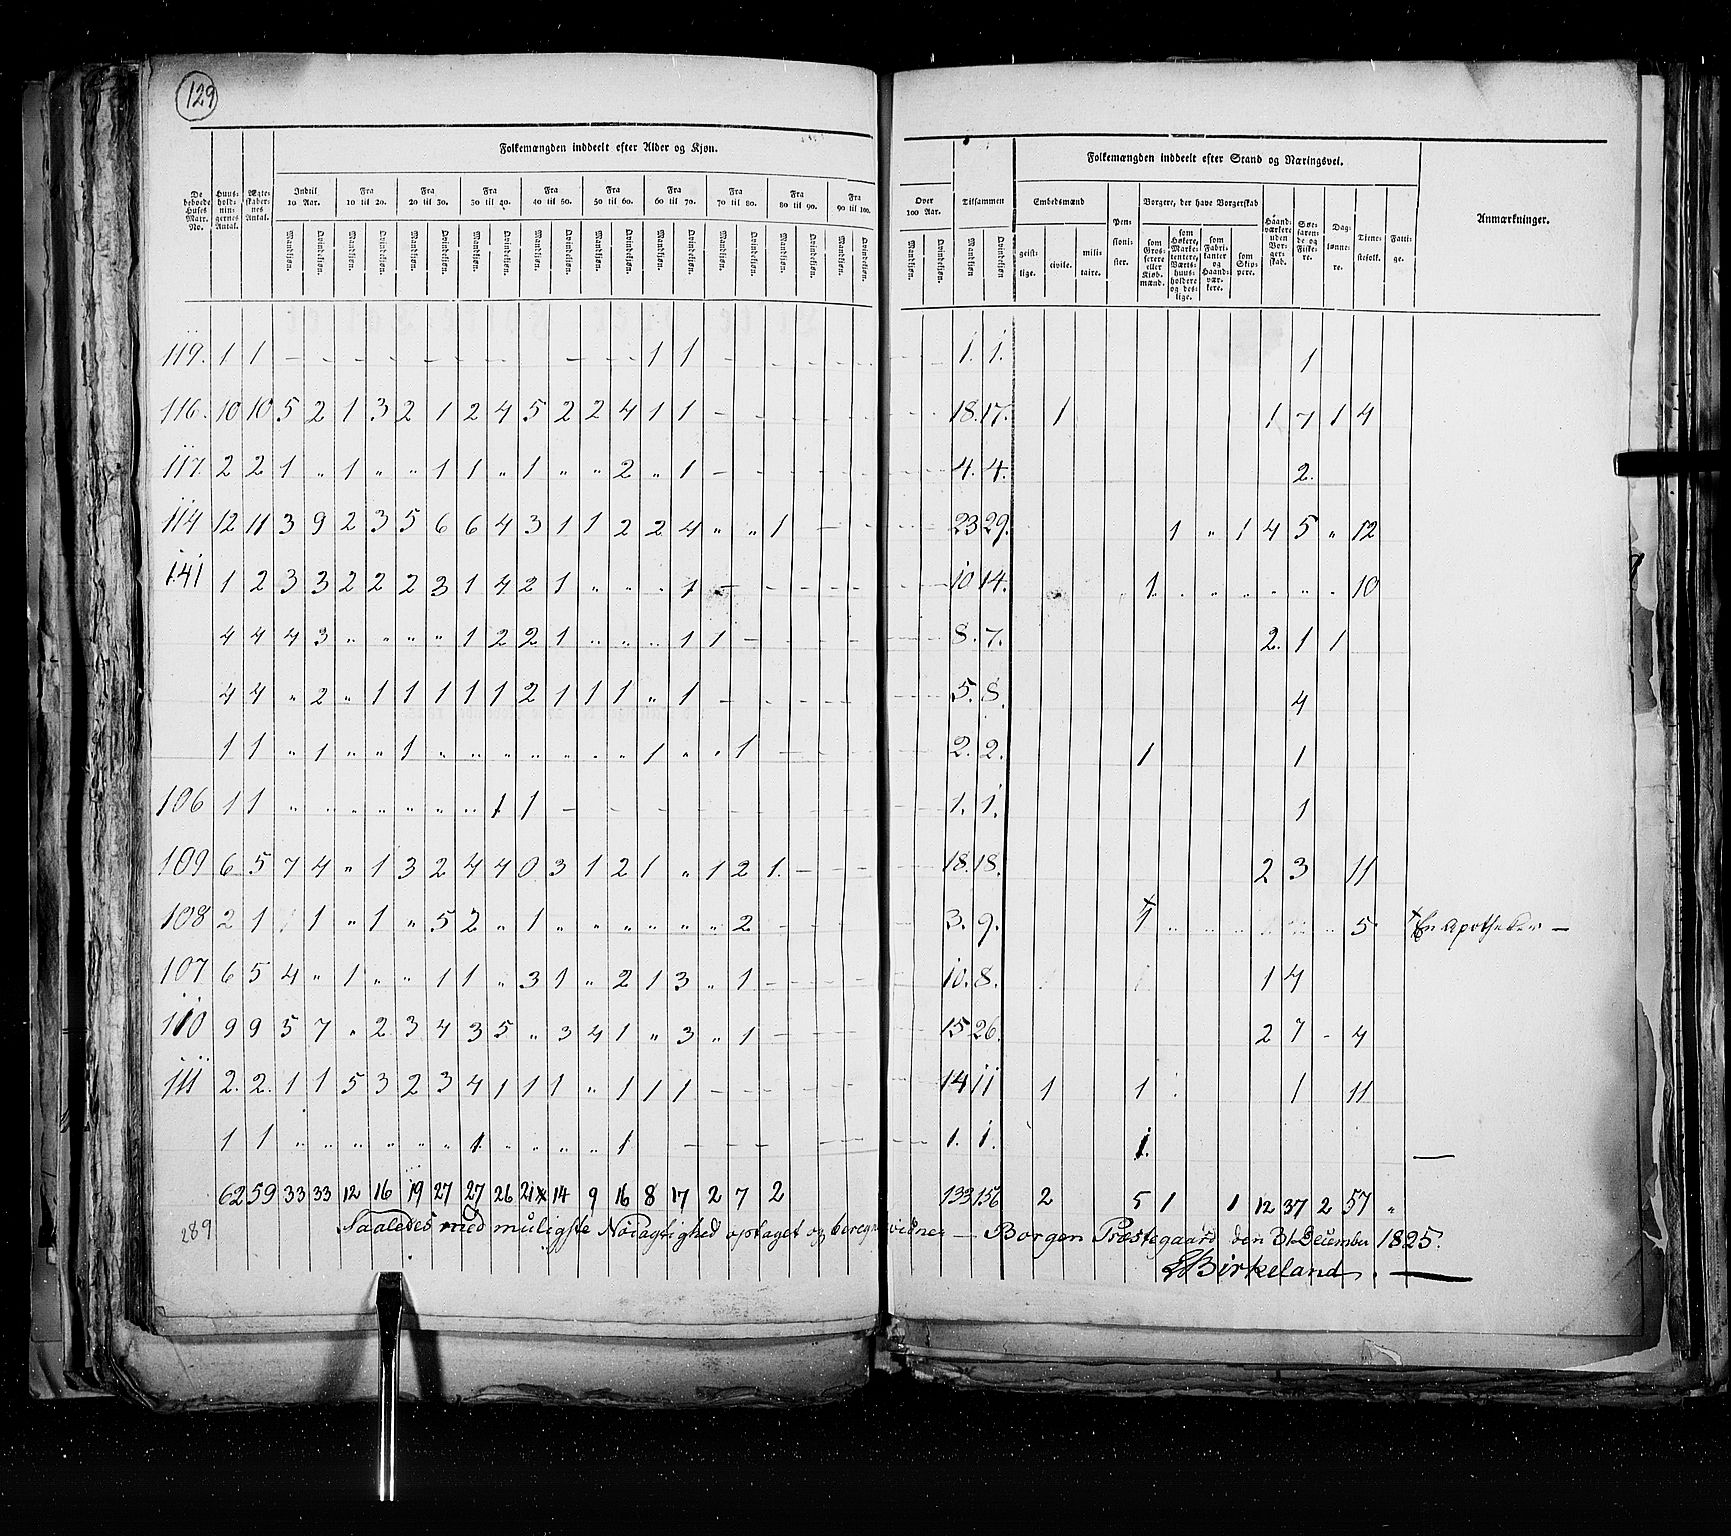 129
Folkemængden inddeelt efter Alder og Kjøn.
Folkemængden inddeelt efter Stand og Næringsvei.
De beboede Huses Matr. No.
Huus-hold-nin-gernes Antal.
Ægte-skaber-nes Antal.
Indtil 10 Aar.
Fra 10 til 20.
Fra 20 til 30.
Fra 30 til 40.
Fra 40 til 50.
Fra 50 til 60.
Fra 60 til 70.
Fra 70 til 80.
Fra 80 til 90.
Fra 90 til 100.
Over 100 Aar.
Tilsammen
Mandkjøn. Qvindekjøn.
Embedsmænd
geist-lige. civile. mili-taire.
Pen-sioni-ster.
Borgere, der have Borgerskab
som Gros-serere eller Kiøb-mænd.
som Høkere, Marke-tentere, Værts-huus-holdere og des-lige.
som Fabri-kanter og Haand-vær-kere.
som Skip-pere.
Haand-værkere uden Bor-ger-skab.
Søe-farende og Fiske-re.
Dag-lønne-re.
Tiene-stefolk.
Fatti-ge.
Anmærkninger.
119. 1 1 – – – – – – – – 1 1 – – – 1. 1. 1
116. 10 10 5 2 1 3 2 1 2 4 5 2 2 4 1 1 – – – 18. 17. 1 1 7 1 4
117. 2 2 1 „ 1 „ „ 1 1 „ 1 „ „ 2 „ 1 – – – 4. 4. 2.
114 12 11 3 9 2 3 5 6 6 4 3 1 1 2 2 4 „ „ 1 – – 23 29. 1 „ 1 4 5 „ 12
141 1 2 3 3 2 2 2 3 1 4 2 1 „ „ „ 1 – – – 10 14. 1. 10
4 4 4 3 „ „ „ „ 1 2 2 1 „ „ „ 1 1 – – 8. 7. 2. 1 1
4 4 „ 2 „ 1 1 1 1 1 2 1 1 1 „ 1 – – – 5. 8. 4
1 1 „ 1 „ „ 1 „ „ „ „ „ „ „ 1 „ „ 1 – – 2. 2. 1 1
106 1 1 „ „ „ „ „ „ „ 1 1 – – – 1. 1. 1
109 6 5 7 4 „ 1 3 2 4 4 0 3 1 2 1 „ 1 2 1. – – 18. 18. 2 3 11
108 2 1 1 „ 1 „ 5 2 „ 1 „ „ „ „ „ „ 2 – – 3. 9. × 1 5. × En Apotheker –
107 6 5 4 „ 1 „ „ 1 1 „ 3 1 „ 2 1 3 „ 1 – – 10. 8. 1 4
110 9 9 5 7 „ 2 3 4 3 5 „ 3 4 1 „ 3 „ 1 – – 15 26. 2 7 – 4
111 2. 2. 1 1 5 3 2 3 4 1 1 1 „ 1 1 1 – – – 14 11 1 1 1 11
1 1 „ „ „ „ „ „ 1. „ „ „ „ 1 – – – 1. 1. 1.
62 59 33 33 12 16 19 27 27 26 21 14 9 16 8 17 2 7 2 133 156 2 5 1 1 12 37 2 57 „
289 Saaledes med muligste Nöiagtighed optaget og vidner — Borgen Præstegaard den 31 December 1825.
Birkeland. —